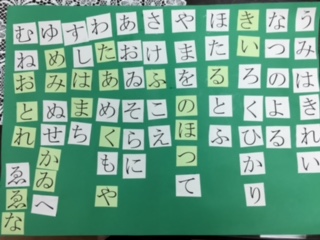 うみはきれい
なつのよる
きいろくひかり
ほたるとふ
やまをのほつて
さけふこえ
あおゐそらに
わたあめくもや
すしはまち
ゆめみぬせかゐへ
むねおとれ
ゑゑな